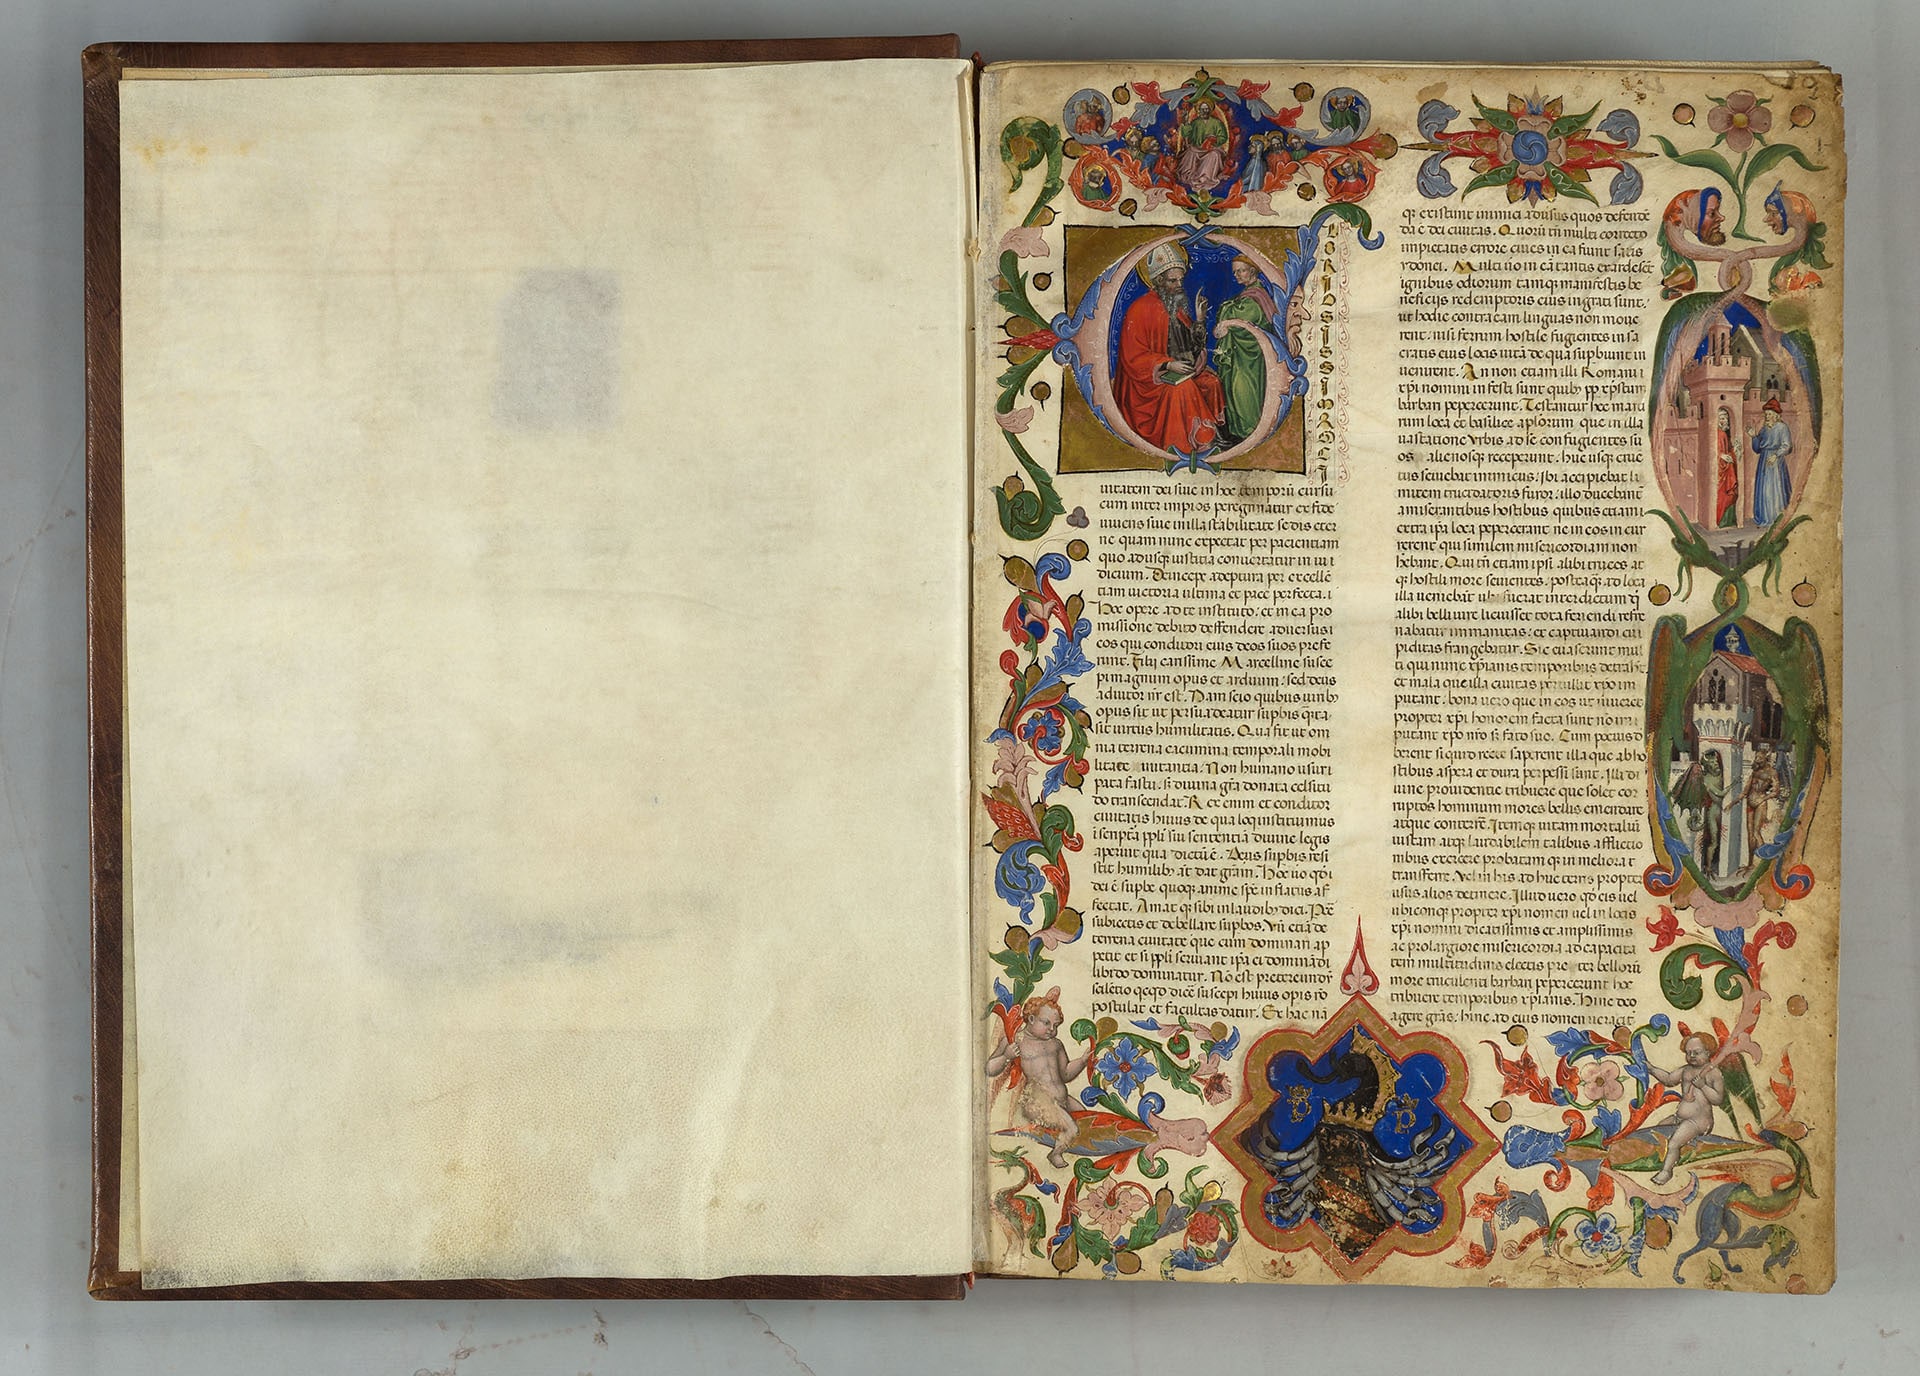 GLORIOSISSIMAM CI
uitatem dei siue in hoc temporũ cursu
cum inter impios peregrinatur ex fide
uiuens siue in illa stabilitate sedis eter
ne quam nunc expectat per pacientiam
quo adusq̃ iustitia conuertatur in iu
dicium. Deincepx adeptura per excellẽ
tiam uictoria ultima et pace perfecta. i
Hoc opere ad te instituto: et in ea pro
missione debito deffendere aduersus i
eos qui conditori eius deos suos prefe
runt. Fili carissime Marcelline susce
pi magnum opus et arduum: sed deus
adiutor nr̃ est. Nam scio quibus uirib;
opus sit ut persuadeatur supbis q̃ta
sit uirtus humilitatis. Qua fit ut om
nia terrena cacumina temporali mobi
litate nutantia. Non humano usur
pata fastu. s; diuina gr̃a donata celsitu
do transcendat. Rex enim et conditor
ciuitatis huius de qua loqui instituimus
i scriptã ppl̃i sui sententiã diuine legis
aperuit qua dictũ ẽ. Deus supbis resi
stit humilib; aũt dat gr̃am. Hoc uo qd̃
dei ẽ supbe quoq; anime sps̃ inflatus af
fectat. Amatq; sibi in laudib; dici. Parc̃e
subiectis et debellare supbos. Vñ etiã de
terrena ciuitate que cum dominari ap
petit et si ppl̃i seruiant ip̃a ei dominãdi
libido dominatur. Nõ est pretereundũ
silentio q̃cq̃d dicẽ suscepi huius opis rõ
postulat et facultas datur. Ex hac nã
q; existunt inimici adũsus quos defende
da ẽ dei ciuitas. Quorũ tñ multi correcto
impietatis errore ciues in ea fiunt satis
ydonei. Multi uo in eã tantis exardescũt
ignibus odiorum tamq; manifestis be
neficijs redemptoris eius ingrati sunt:
ut hodie contra eam linguas non moue
rent: nisi ferrum hostile fugientes in sa
cratis eius locis uitã de qua supbiunt in
uenirent. An non etiam illi Romani i
xp̃i nomini infesti sunt quib; pp xp̃istum
barbari pepercerunt. Testantur hoc marti
rum loca et basilice apl̃orum que in illa
uastatione Vrbis ad se confugientes su
os alienosq; receperunt. huc usq; crue
tus seuiebat inimicus: ibi accipiebat li
mitem trucidatoris furor: illo ducebant
a miserantibus hostibus quibus etiam i
extra ip̃a loca pepercerant ne in eos incur
rerent qui similem misericordiam non
hẽbant. Qui tñ etiam ipsi alibi truces at
q; hostili more seuientes: postea q; ad loca
illa ueniebãt ubi fuerat interdictum q̃
alibi belli iure licuisset tota feriendi refre
nabatur immanitas: et captiuandi cu
piditas frangebatur. Sic euaserunt mul
ti qui nunc xp̃ianis temporibus detrahũt
et mala que illa ciuitas pertulit xp̃o im
putant. bona uero que in eos ut uiuerẽt
propter xp̃i honorem facta sunt nõ im
putant xp̃o nr̃o s; fato suo. Cum pocius d
berent si quid recte saperent illa que ab ho
stibus aspera et dura perpessi sunt. Illi di
uine prouidentie tribuere que solet cor
ruptos hominum mores bellis emendare
atque conterẽ. Itemq; uitam mortaliũ
iustam atq; laudabilem talibus afflictio
nibus exercere probatamq; in meliora t
transferre. Vel in his adhuc terris propter
usus alios detinere. Illud uero qd̃ eis uel
ubicunq; propter xp̃i nomen uel in locis
xp̃i nomini dicatissimis et amplissimis
ac pro largiore misericordia ad capacita
tem multitudinis electis preter bellorũ
more truculenti barbari pepercerunt hoc
tribuere temporibus xp̃ianis. Hinc deo
agere gr̃as: hinc ad eius nomen ueracit̃